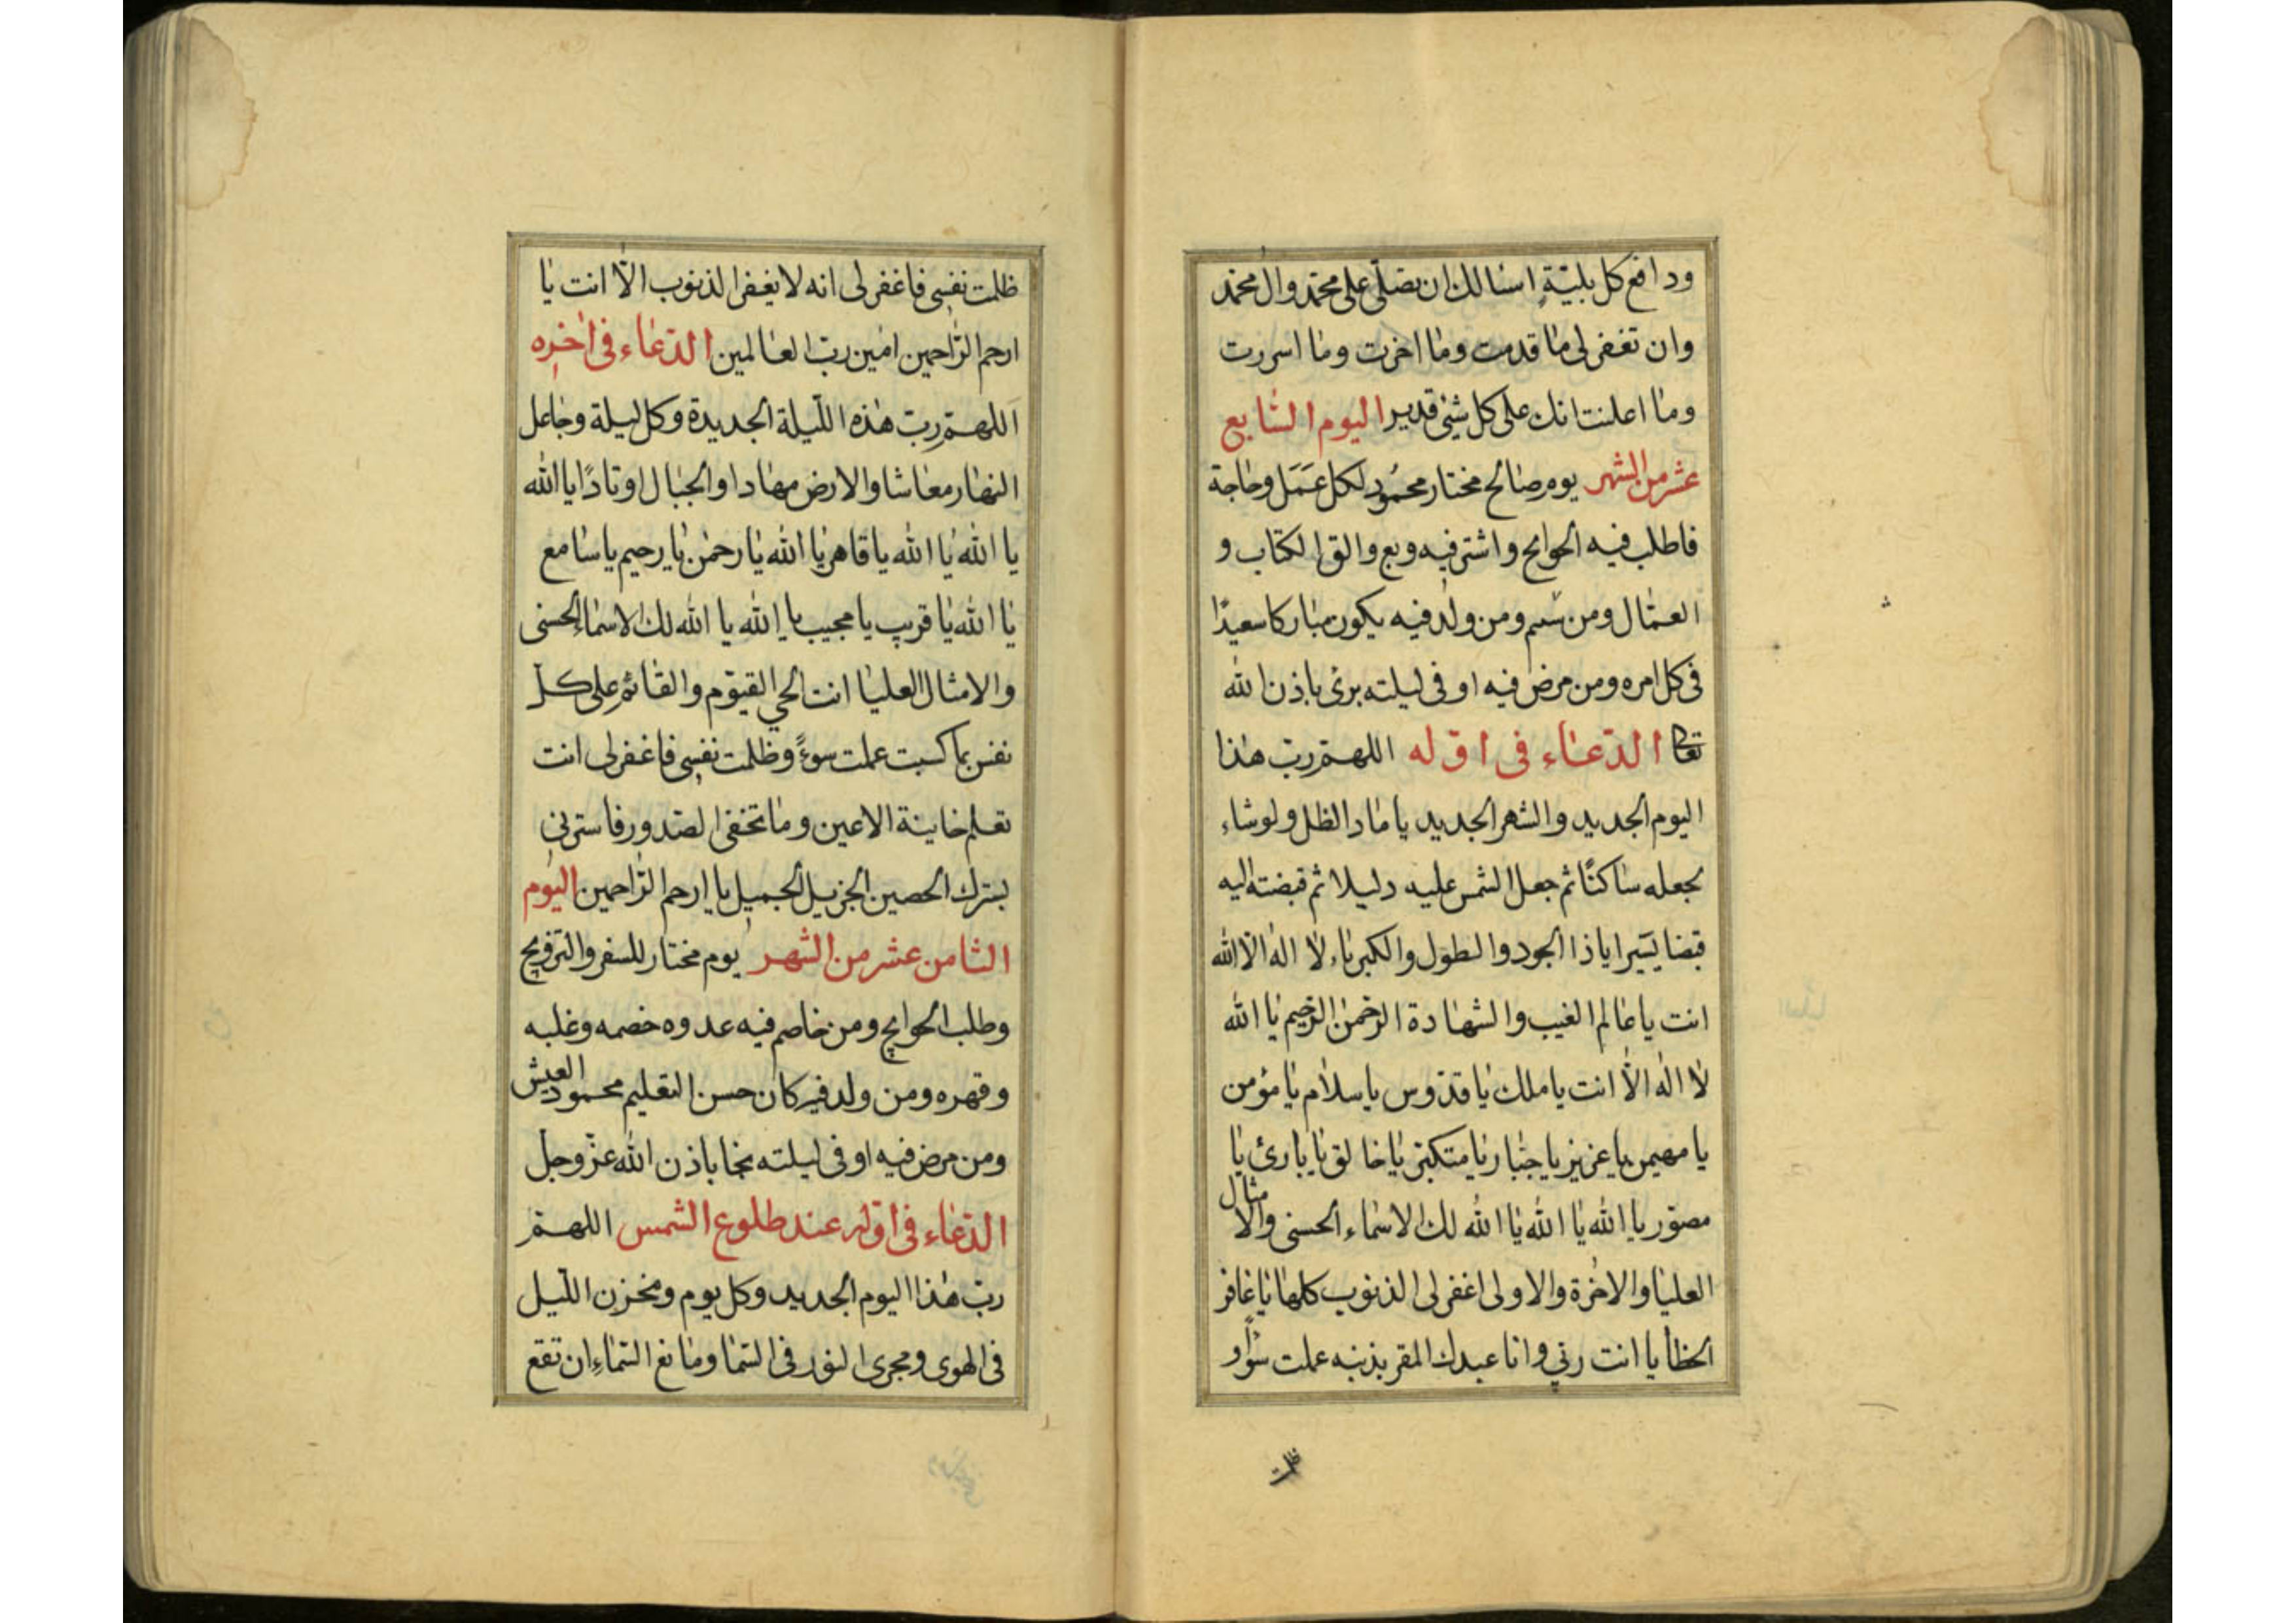 ودافع كل بليّةٍ اسئالك ان تصلّى على محمّد وال محمّد
وان تغفر لى ما قدمت وما اخرت وما اسررت
وما اعلنت انك على كل شئ قدير اليوم السّابع
عشر من الشهر يوم صالح مختار محمُودٍ لكل عَمَل وحاجة
فاطلب فيه الحوايج واشتر فيه وبع والق الكتاب و
العمّال ومن سم ومن ولد فيه يكون مباركا سعيدًا
فى كل امره ومن مرض فيه او فى ليلته برئ باذن الله
تعالى الدّعاء فى اوّله اللهمّ ربّ هذا
اليوم الجديد والشهر الجديد يا مادّ الظل ولو شاء
لجعله ساكنًا ثم جعل الشمس عليه دليلا ثم قبضته اليه
قبضا يَسيرا ياذا الجود والطوَل والكبرياء لا اله الّا الله
انت يا عالم الغيب والشهادة الرّحمن الرّحيم يا الله
لا اله الّا انت يا ملك يا قدّوس يا سلام يا مؤمن
يا مهيمن يا عزيز يا جبّار يا متكبّر يا خالق يا بارئ يا
مصوّر يا الله يا الله يا الله لك الاسماء الحسنى والامثال
العليا والاخرة والاولى اغفر لى الذنوب كلها يا غافر
الخطايا انت ربّي وانا عبدك المقر بذنبه عملت سوًأ و
ظلمت
ظلمت نفسِى فاغفر لى انه لا يغفر الذنوب الّا انت يا
ارحم الرّاحمين امين ربّ العالمين الدّعاء فى اخِره
اَللهمّ ربّ هذه اللّيلة الجديدة وكل ليلة وجاعل
النهار معاشا والارض مهادا والجبال اوتادًا يا الله
يا الله يا الله يا قاهر يا الله يا رحمن يا يرحيم يا سامع
يا الله يا قريب يا مجيب يا الله يا الله لك الاسماء الحسنى
والامثال العليا انت الحي القيّوم والقائم على كلّ
نفس بما كسبت عملت سوءً وظلمت نفسِى فاغفر لى انت
تعلم خاينة الاعين وما تخفى الصّدور فاسترنى
بسترك الحصين الجزيل الجميل يا ارحم الرّاحمين اليوم
الثامن عشر من الشهر يوم مختار للسفر والتزويج
وطلب الحوايج ومن خاصم فيه عدوه خصمه وغلبه
وقهره ومن ولد فيه كان حسن التعليم محمود العيش
ومن مرض فيه او فى ليلته نجا باذن الله عزّ وجلّ
الدّعاء فى اوّله عند طلوع الشمس اللهمّ
ربّ هذا اليوم الجديد وكل يوم ومخزن اللّيل
فى الهوى ومجرى النور فى السّما ومانع السّماءِ ان تقع